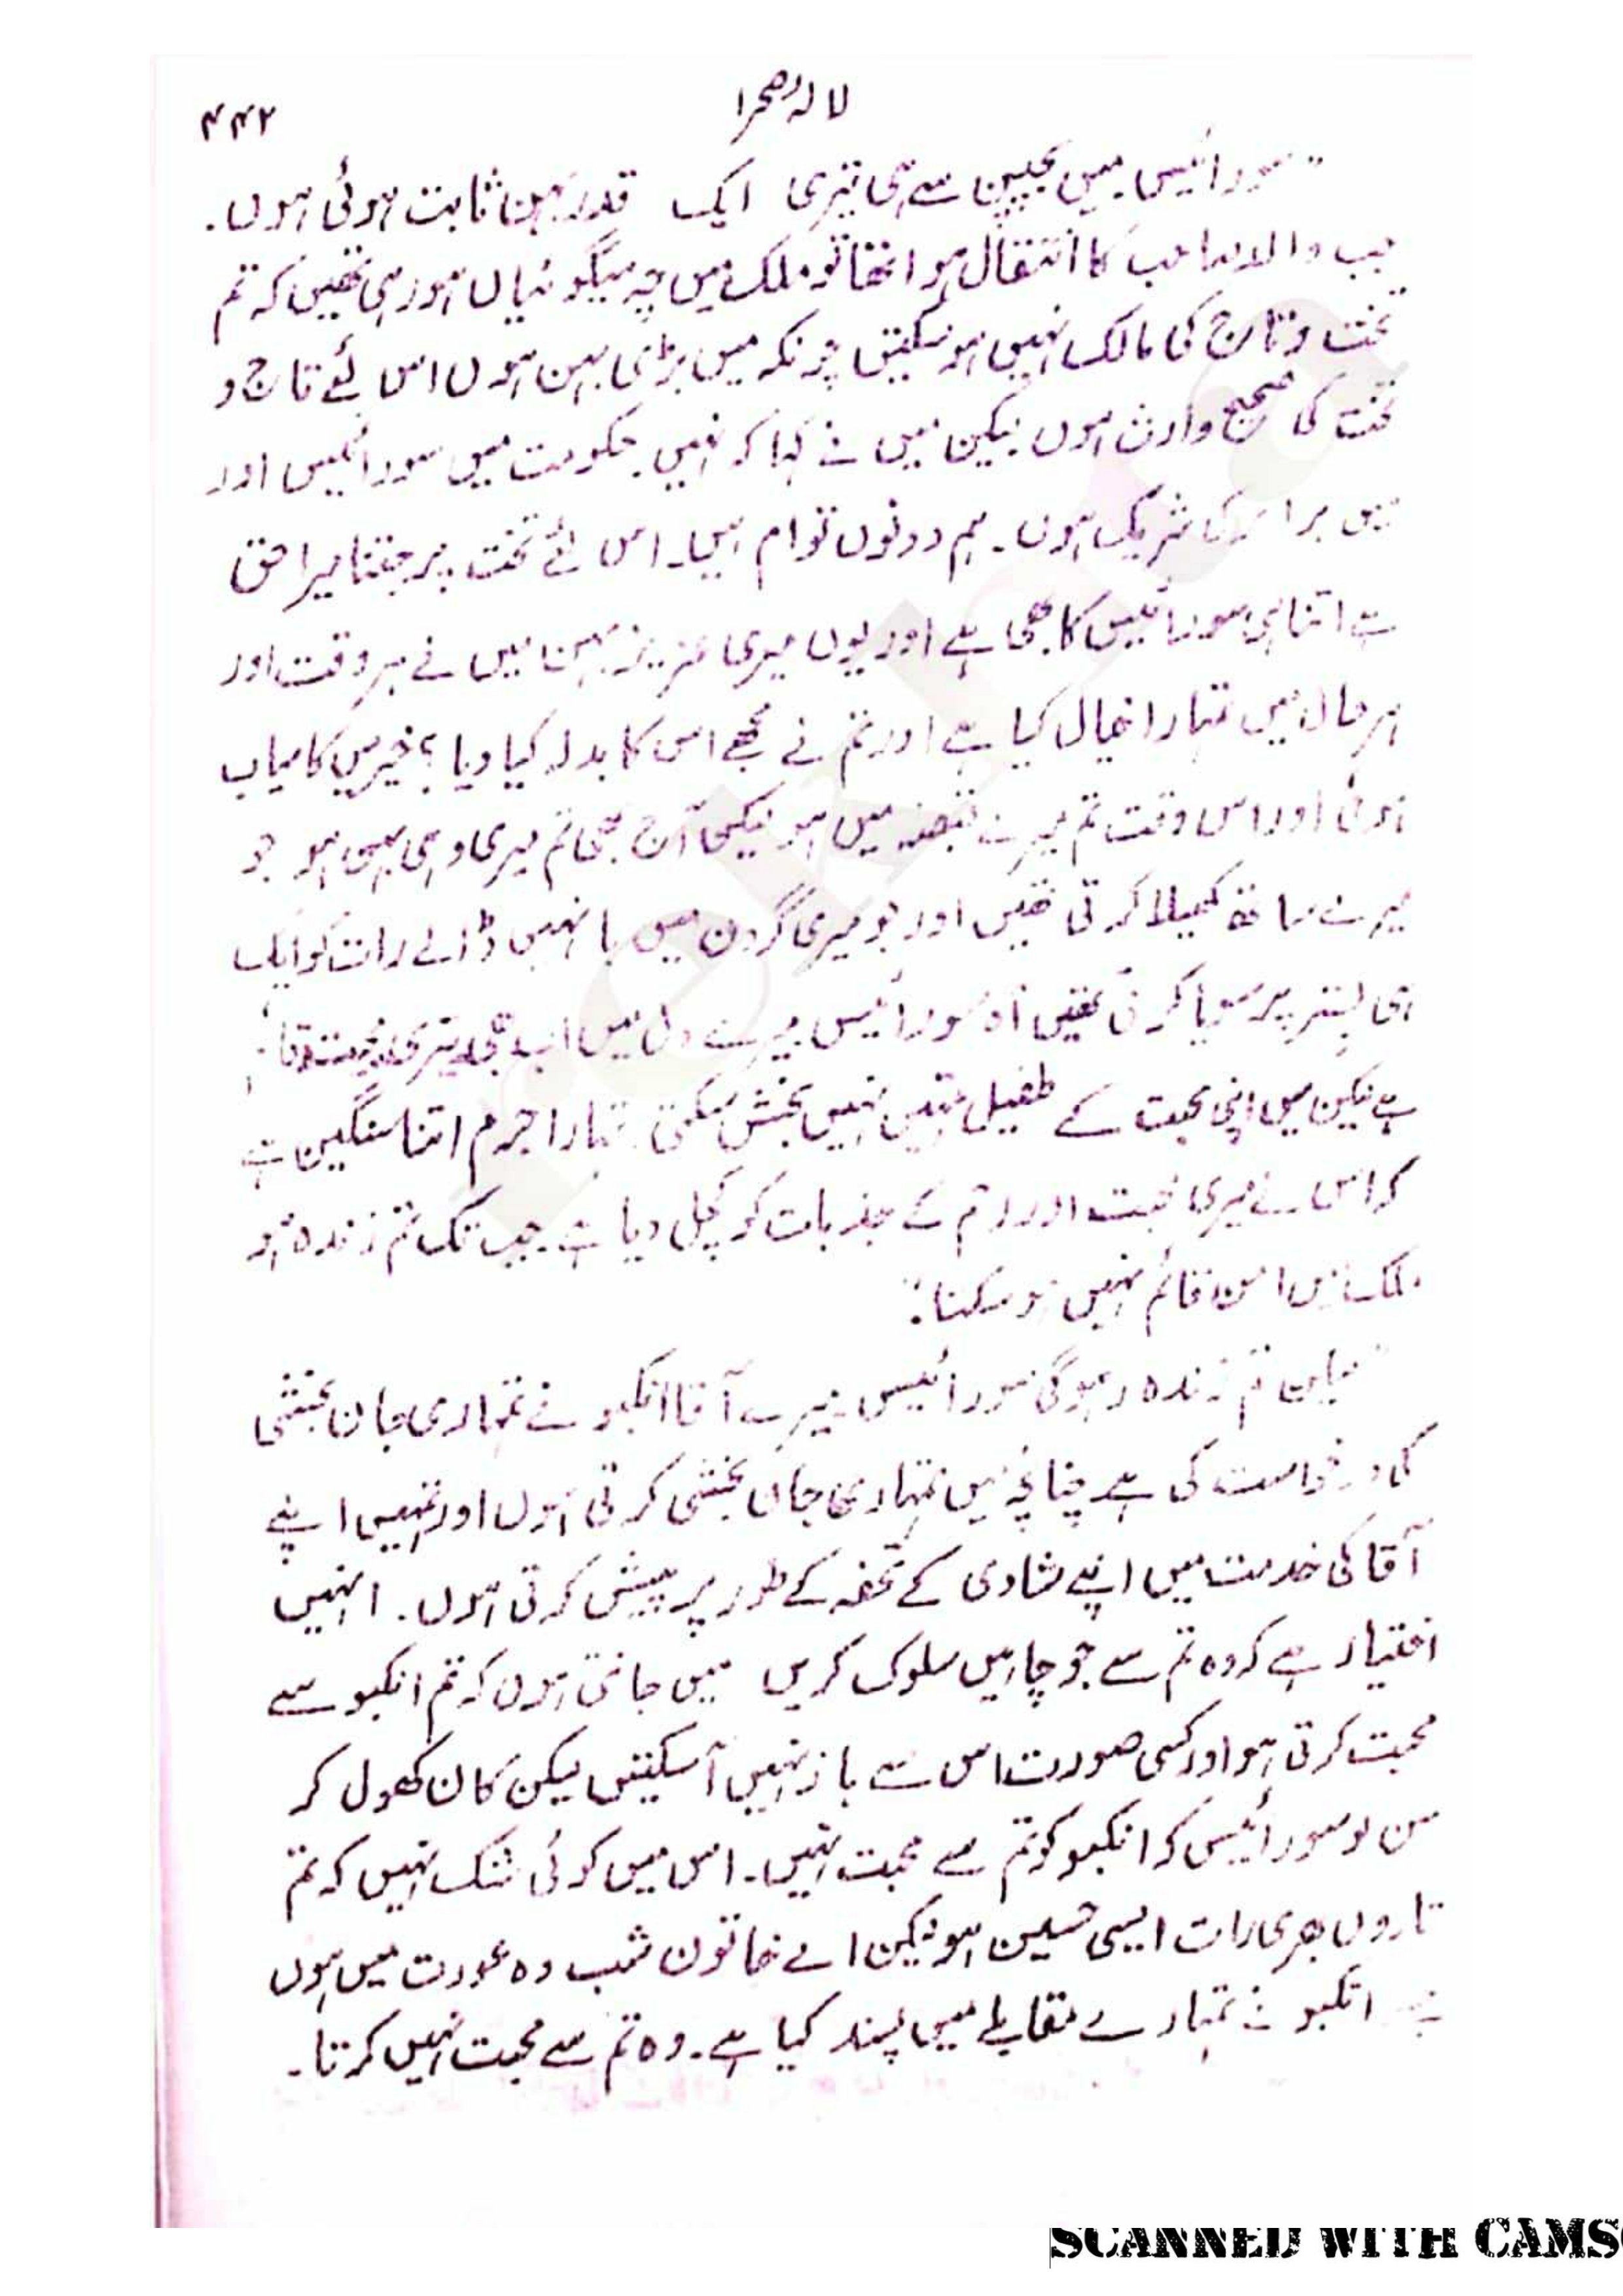 لالۂ صحرا
۴۴۲
"سورائیس میں بچپن سے ہی تیری ایک قدر بہن ثابت ہوئی ہوں۔
جب والد صاحب کا انتقال ہوا تھا تو ملک میں چہ میگوئیاں ہو رہی تھیں کہ تم
تخت و تاج کی مالک نہیں ہو سکتیں چونکہ میں بڑی بہن ہوں اس لئے تاج و
تخت کی صحیح وارث ہوں لیکن میں نے کہا کہ نہیں حکومت میں سورائیس اور
میں برابر کی شریک ہوں۔ ہم دونوں توام ہیں۔ اس لئے تخت پر جتنا میرا حق
ہے اتنا ہی سورائیس کا بھی ہے اور یوں میری عزیز بہن میں نے ہر وقت اور
ہر حال میں تمہارا خیال کیا ہے اور تم نے مجھے اس کا بدلہ کیا دیا؟ خیر میں کامیاب
ہوئی اور اس وقت تم میرے قبضہ میں ہو لیکن آج بھی تم میری وہی بہن ہو جو
میرے ساتھ کھیلا کرتی تھیں اور جو میری گردن میں بانہیں ڈالے رات کو ایک
ہی بستر پر سویا کرتی تھیں آہ سورائیس میرے دل میں اب بھی تیری محبت
ہے لیکن میں اپنی محبت کے طفیل تمہیں نہیں بخش سکتی تمہارا جرم اتنا سنگین ہے
کہ اس نے میری محبت اور رحم کے جذبات کو کچل دیا ہے۔ جب تک تم زندہ ہو
ملک میں امن قائم نہیں ہو سکتا۔"
"لیکن تم زندہ رہو گی سورائیس۔ میرے آقا انکبو نے تمہاری جان بخشی
کی درخواست کی ہے چنانچہ میں تمہاری جان بخشی کرتی ہوں اور تمہیں اپنے
آقا کی خدمت میں اپنے شادی کے تحفہ کے طور پر پیش کرتی ہوں۔ انہیں
اختیار ہے کہ وہ تم سے جو چاہیں سلوک کریں میں جانتی ہوں کہ تم انکبو سے
محبت کرتی ہو اور کسی صورت اس سے باز نہیں آ سکتیں لیکن کان کھول کر
سن لو سورائیس کہ انکبو کو تم سے محبت نہیں۔ اس میں کوئی شک نہیں کہ تم
تاروں بھری رات ایسی حسین ہو لیکن اے خاتون شب وہ عورت میں ہوں
جسے انکبو نے تمہارے مقابلے میں پسند کیا ہے۔ وہ تم سے محبت نہیں کرتا۔
SCANNED WITH CAMS